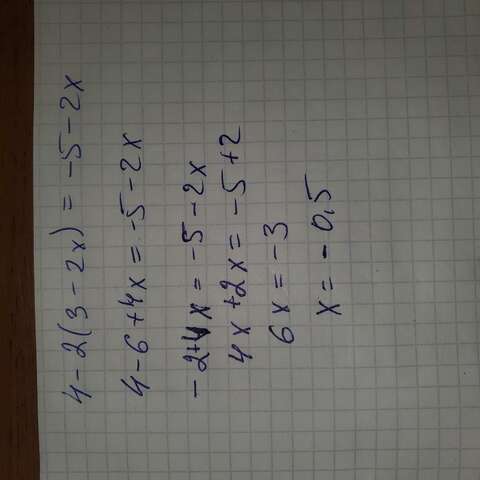 4-2(3-2x)=-5-2x
4-6+4x=-5-2x
-2+4x=-5-2x
4x+2x=-5+2
6x=-3
x=-0,5